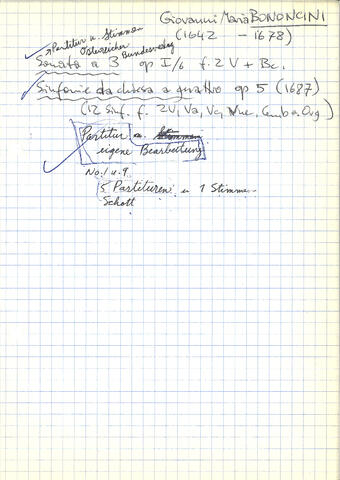 Giovanni Maria BONONCINI
(1642 - 1678)
Partitur u. Stimmen
Österreicher Bundesverlag
Sonata a 3 op I/6 f. 2 V + Bc.
Sinfonie da chiesa a quattro op 5 (1687)
(12 Sinf. f. 2V, Va, Vc, Vne, Cemb o. Org)
Partitur u. Stimmen
eigene Bearbeitung
No. 1 u. 9
5 Partituren u 1 Stimme
Schott